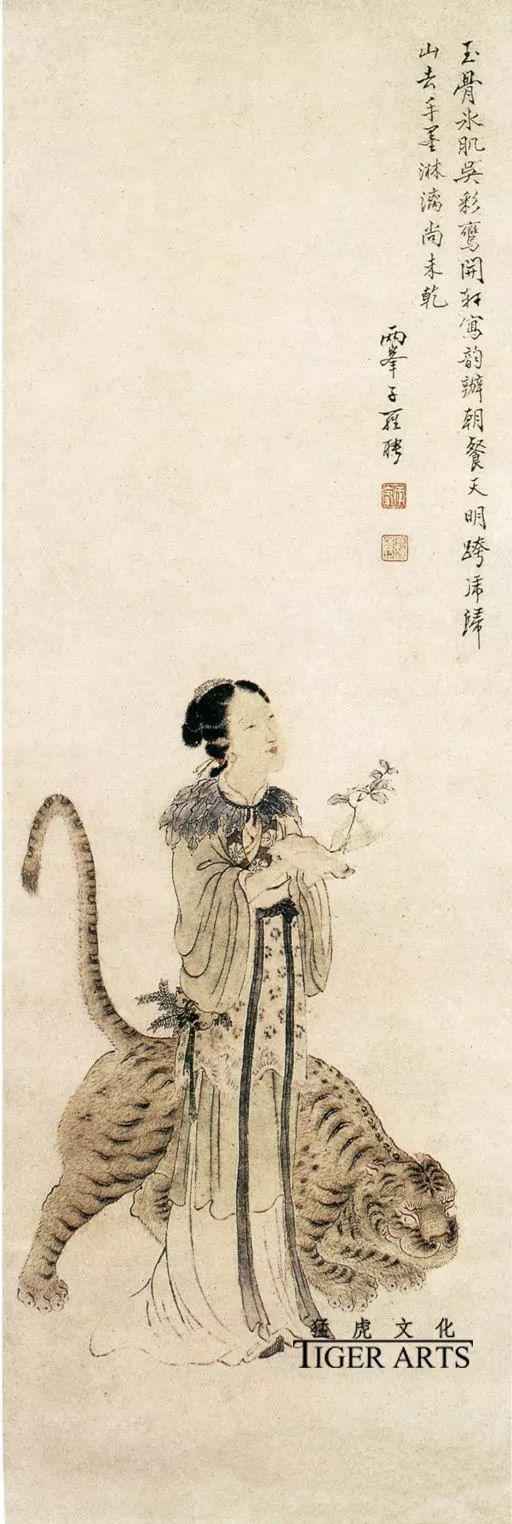 玉骨氷肌吳彩鸞開軒寫韵辦朝餐天明跨虎歸
山去手墨淋漓尚未乾
兩峯子羅聘
猛虎文化
TIGER ARTS